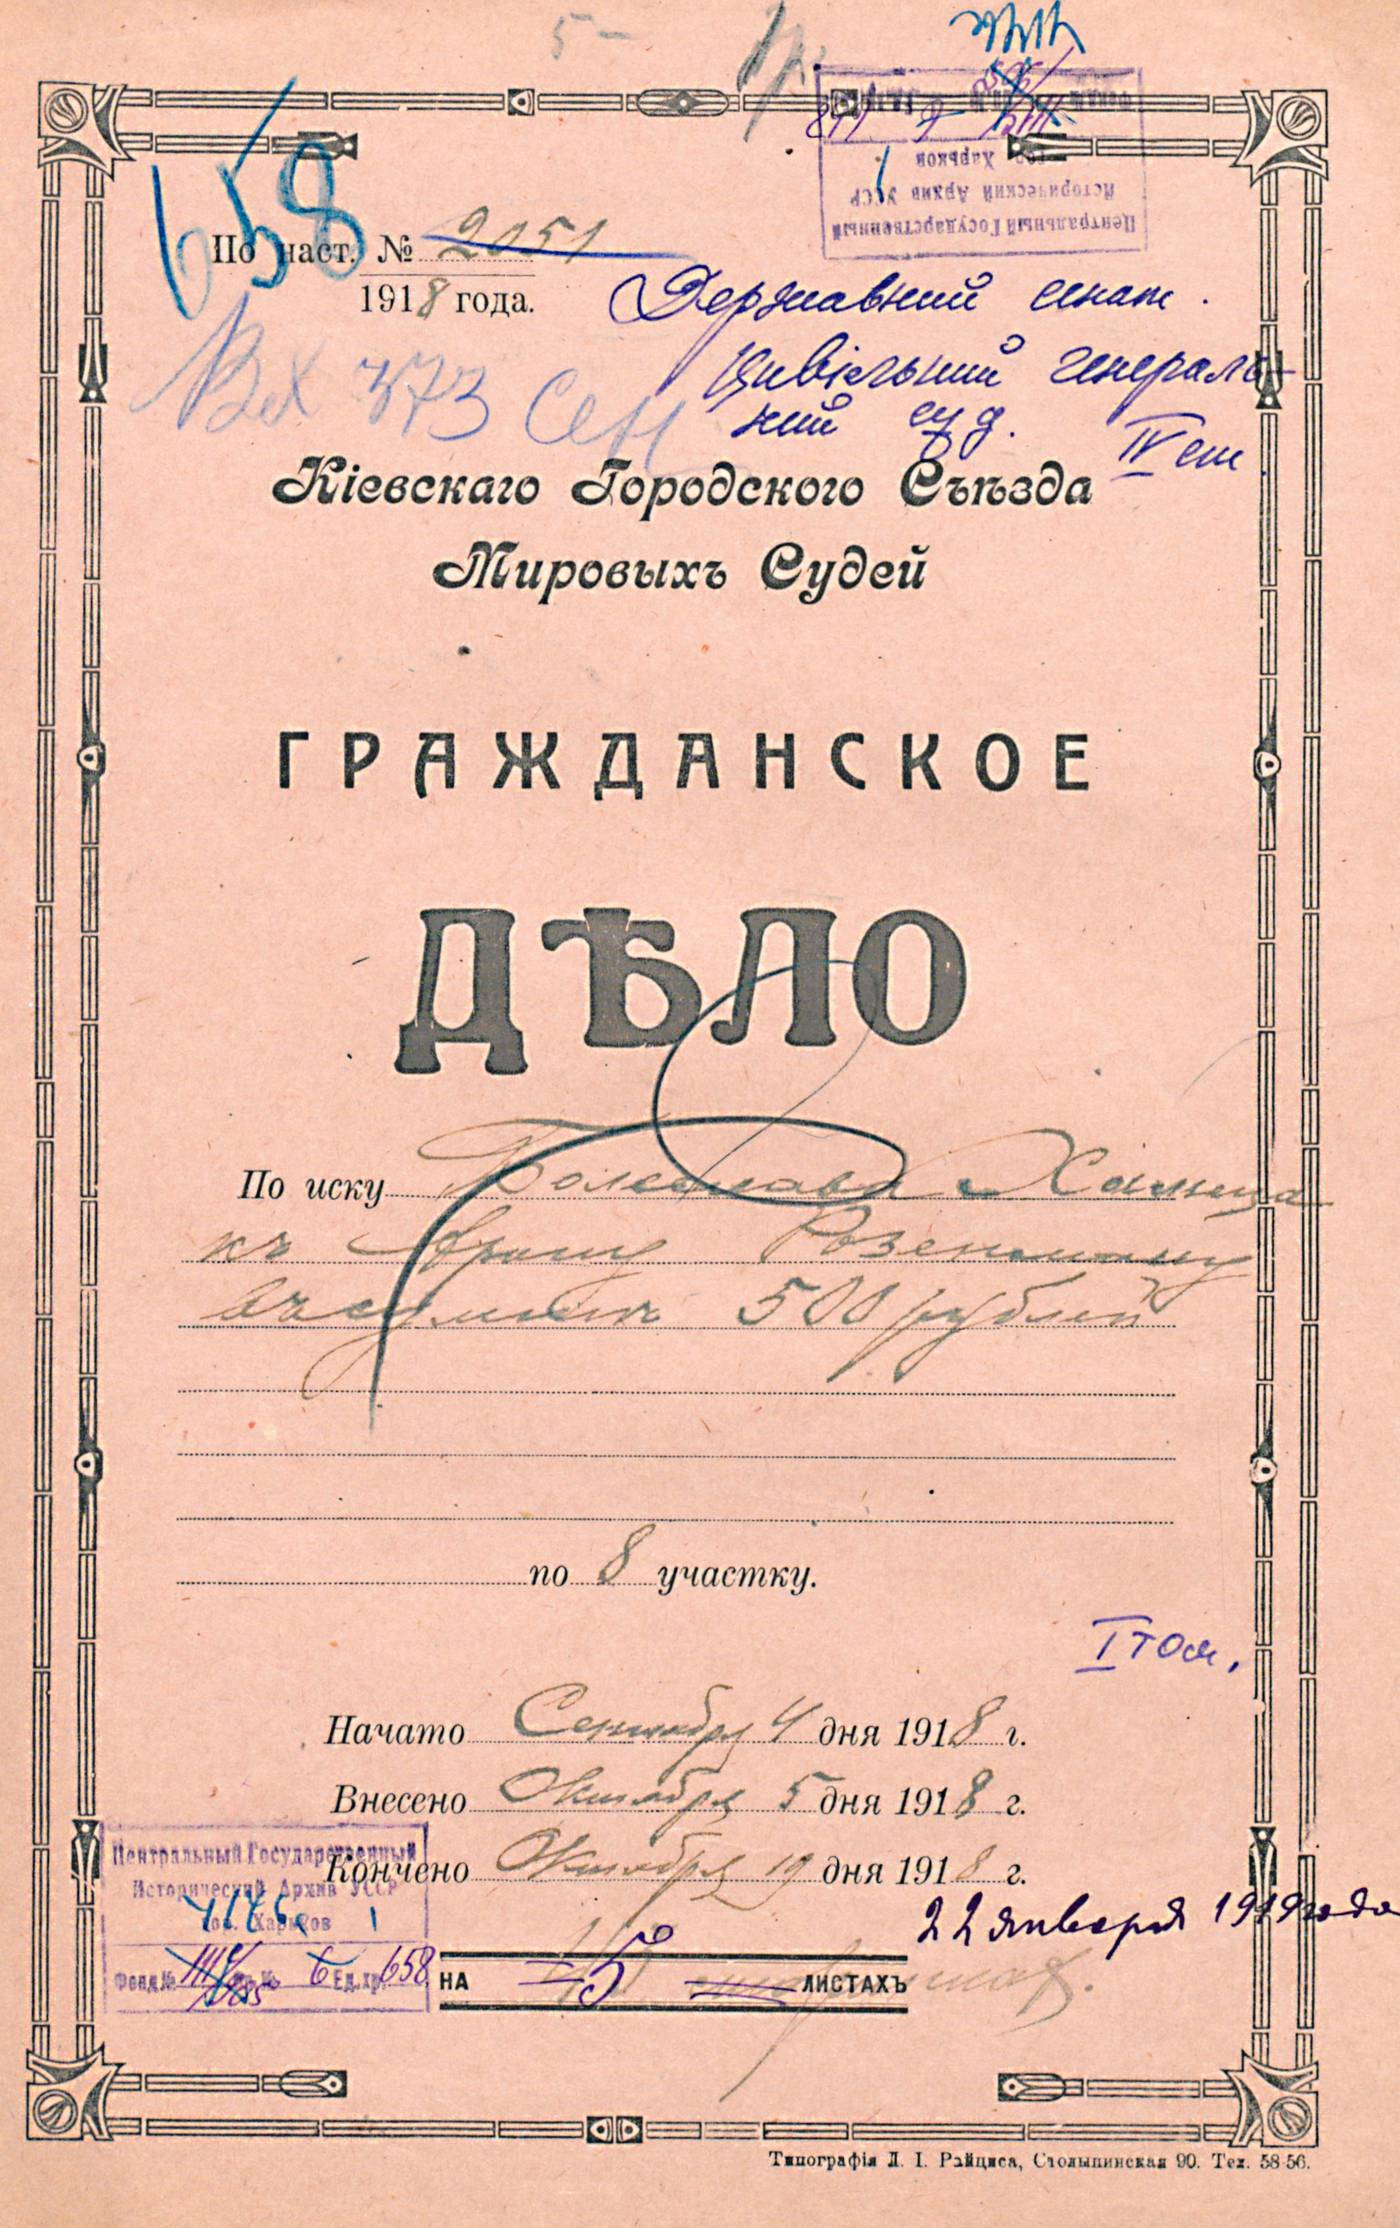 5 –
658
По наст. № 2051
1918 года.
Центральный Государственный
Исторический Архив УССР
гор. Харьков
Державний сенат.
Цивільний генераль-
ний суд. IV ст
Вх 373 Сен
Кіевскаго Городского Съѣзда
Мировыхъ Судей
ГРАЖДАНСКОЕ
ДѢЛО
По иску Болеслава
къ Розенману
въ суммѣ 500 рублей
по 8 участку.
I том.
Начато Сентября 4 дня 1918 г.
Внесено Октября 5 дня 1918 г.
Кончено Октября 19 дня 1918 г.
22 января 1919 года
Центральный Государственный
Исторический Архив УССР
гор. Харьков
Фонд № 6 Ед. хр. 658
НА 5 ЛИСТАХЪ
Типографія Д. І. Райциса, Столыпинская 90. Тел. 58-56.